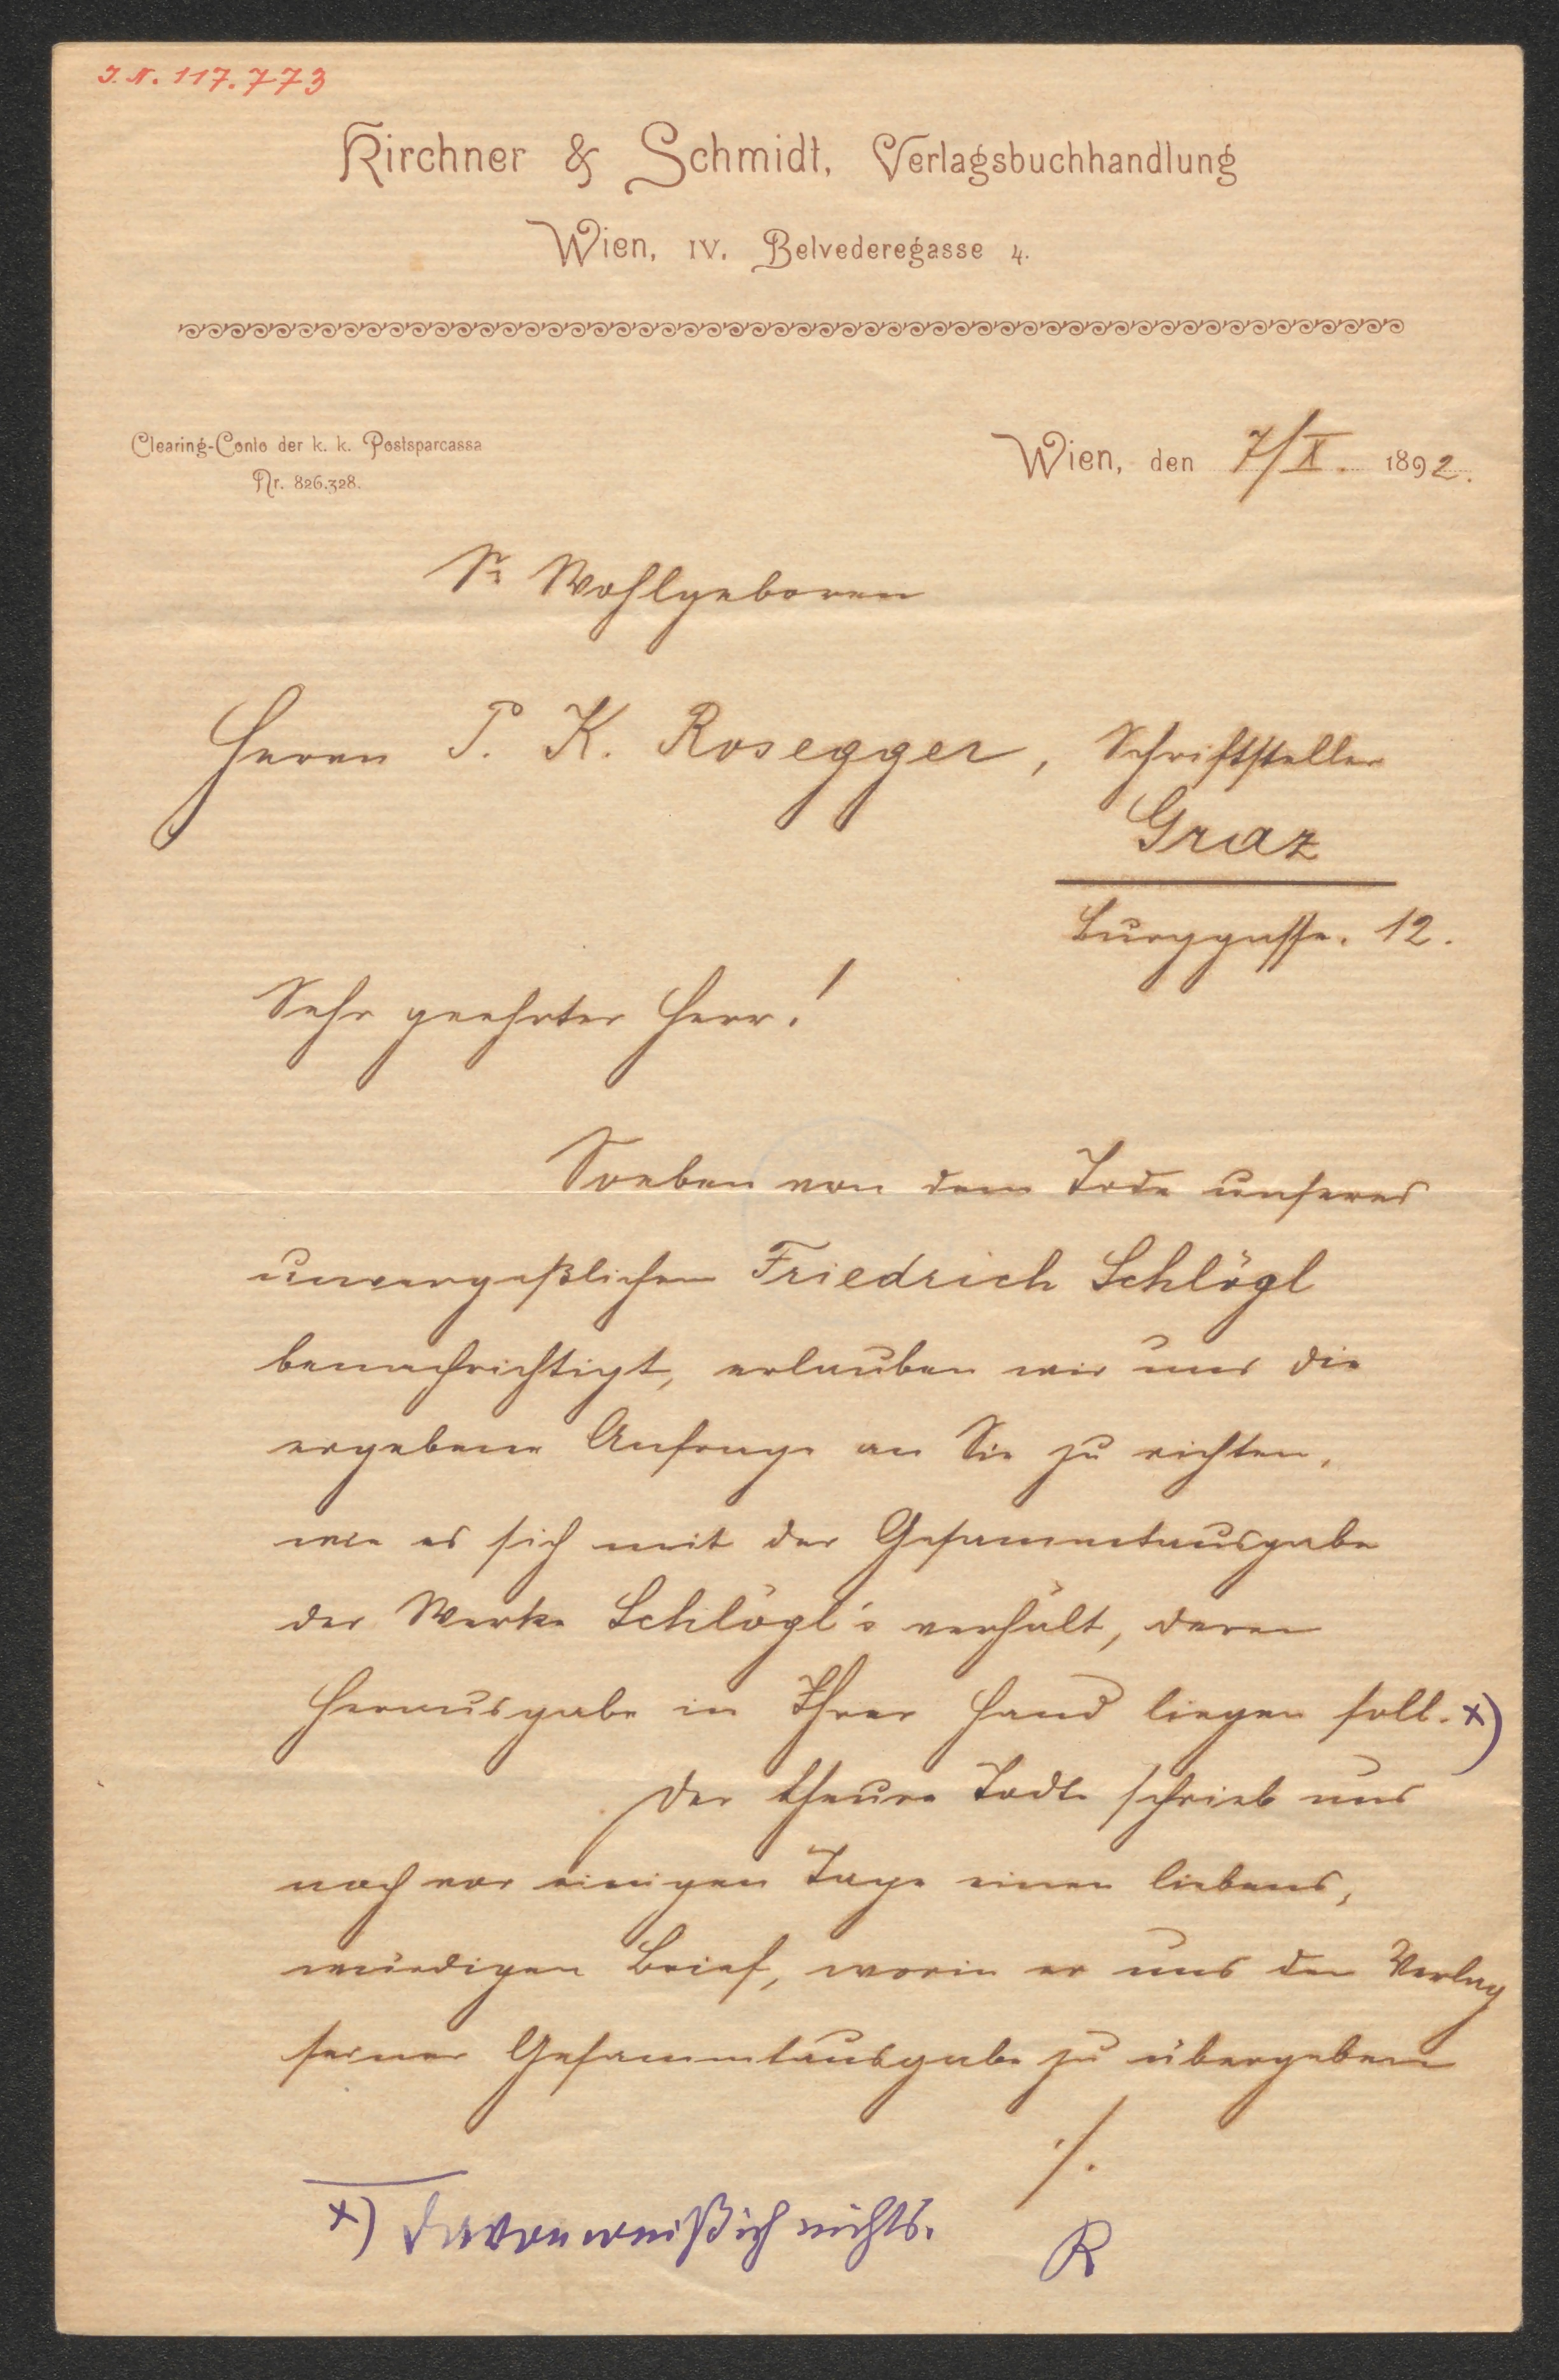 I. N. 117.773
Kirchner & Schmidt, Verlagsbuchhandlung
Wien, IV. Belvederegasse 4.
Clearing-Conto der k. k. Postsparcassa
Nr. 826.328.
Wien, den 7/X. 1892.
Sr Wohlgeboren
Herrn P. K. Rosegger, Schriftsteller
Graz
Burggasse. 12.
Sehr geehrter Herr!
Soeben von dem Tode unseres
unvergeßlichen Friedrich Schlögl
benachrichtigt, erlauben wir uns die
ergebene Anfrage an Sie zu richten,
wie es sich mit der Gesammtausgabe
der Werke Schlögl's verhält, deren
Herausgabe in Ihrer Hand liegen soll. x)
Der theure Todte schrieb uns
noch vor einigen Tage einen liebens,
würdigen Brief, worin er uns den Verlag
seiner Gesammtausgabe zu übergeben
./.
x) Davon weiß ich nichts.
R